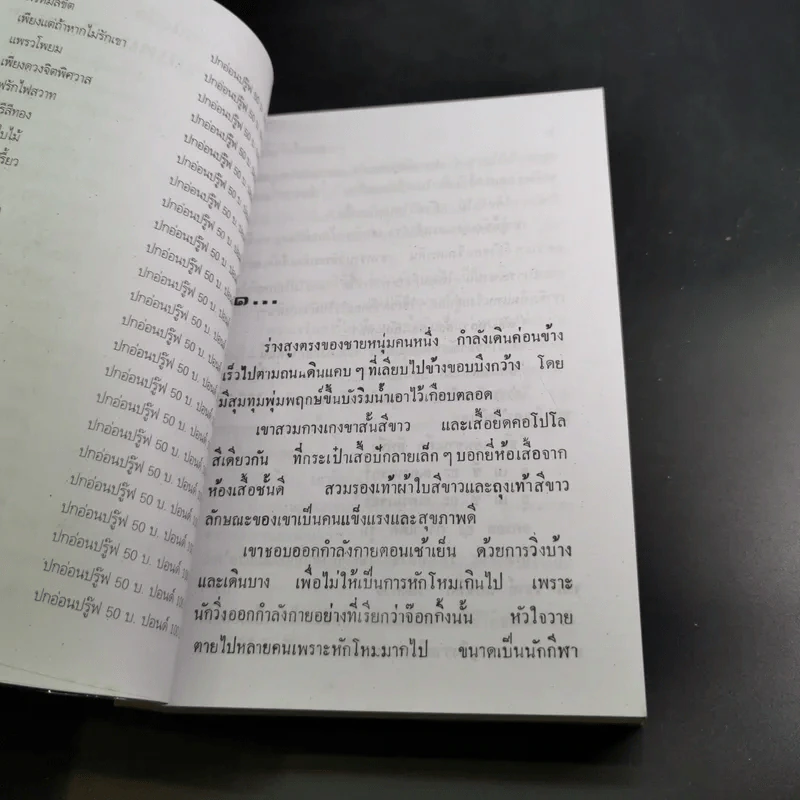 เพียงแต่ถ้าหากไม่รักเขา
แพรวโพยม
เพียงดวงจิตพิศวาส
ปกอ่อนปรู๊ฟ 50
ปกอ่อนปรู๊ฟ 50 บ.
ปกอ่อนปรู๊ฟ 50 บ.
ปกอ่อนปรู๊ฟ 50 บ.
ปกอ่อนปรู๊ฟ 50 บ.
ปกอ่อนปรู๊ฟ 50 บ.
ปกอ่อนปรู๊ฟ 50 บ. ปอนด์
ปกอ่อนปรู๊ฟ 50 บ. ปอนด์
ปกอ่อนปรู๊ฟ 50 บ. ปอนด์
ปกอ่อนปรู๊ฟ 50 บ. ปอนด์
ปกอ่อนปรู๊ฟ 50 บ. ปอนด์
ปกอ่อนปรู๊ฟ 50 บ. ปอนด์
ปกอ่อนปรู๊ฟ 50 บ. ปอนด์
ปกอ่อนปรู๊ฟ 50 บ. ปอนด์
ปกอ่อนปรู๊ฟ 50 บ. ปอนด์ 100
ปกอ่อนปรู๊ฟ 50 บ. ปอนด์ 100
ปกอ่อนปรู๊ฟ 50 บ. ปอนด์ 100
๑...
ร่างสูงตรงของชายหนุ่มคนหนึ่ง กำลังเดินค่อนข้าง
เร็วไปตามถนนดินแคบๆที่เลียบไปข้างขอบบึงกว้าง โดย
มีสุมทุมพุ่มพฤกษ์ขึ้นบังริมน้ำเอาไว้เกือบตลอด
เขาสวมกางเกงขาสั้นสีขาว และเสื้อยืดคอโปโล
สีเดียวกัน ที่กระเป๋าเสื้อปักลายเล็กๆบอกยี่ห้อเสื้อจาก
ห้องเสื้อชั้นดี สวมรองเท้าผ้าใบสีขาวและถุงเท้าสีขาว
ลักษณะของเขาเป็นคนแข็งแรงและสุขภาพดี
เขาชอบออกกำลังกายตอนเช้าเย็น ด้วยการวิ่งบ้าง
และเดินบาง เพื่อไม่ให้เป็นการหักโหมเกินไป เพราะ
นักวิ่งออกกำลังกายอย่างที่เรียกว่าจ๊อกกิ้งนั้น หัวใจวาย
ตายไปหลายคนเพราะหักโหมมากไป ขนาดเป็นนักกีฬา